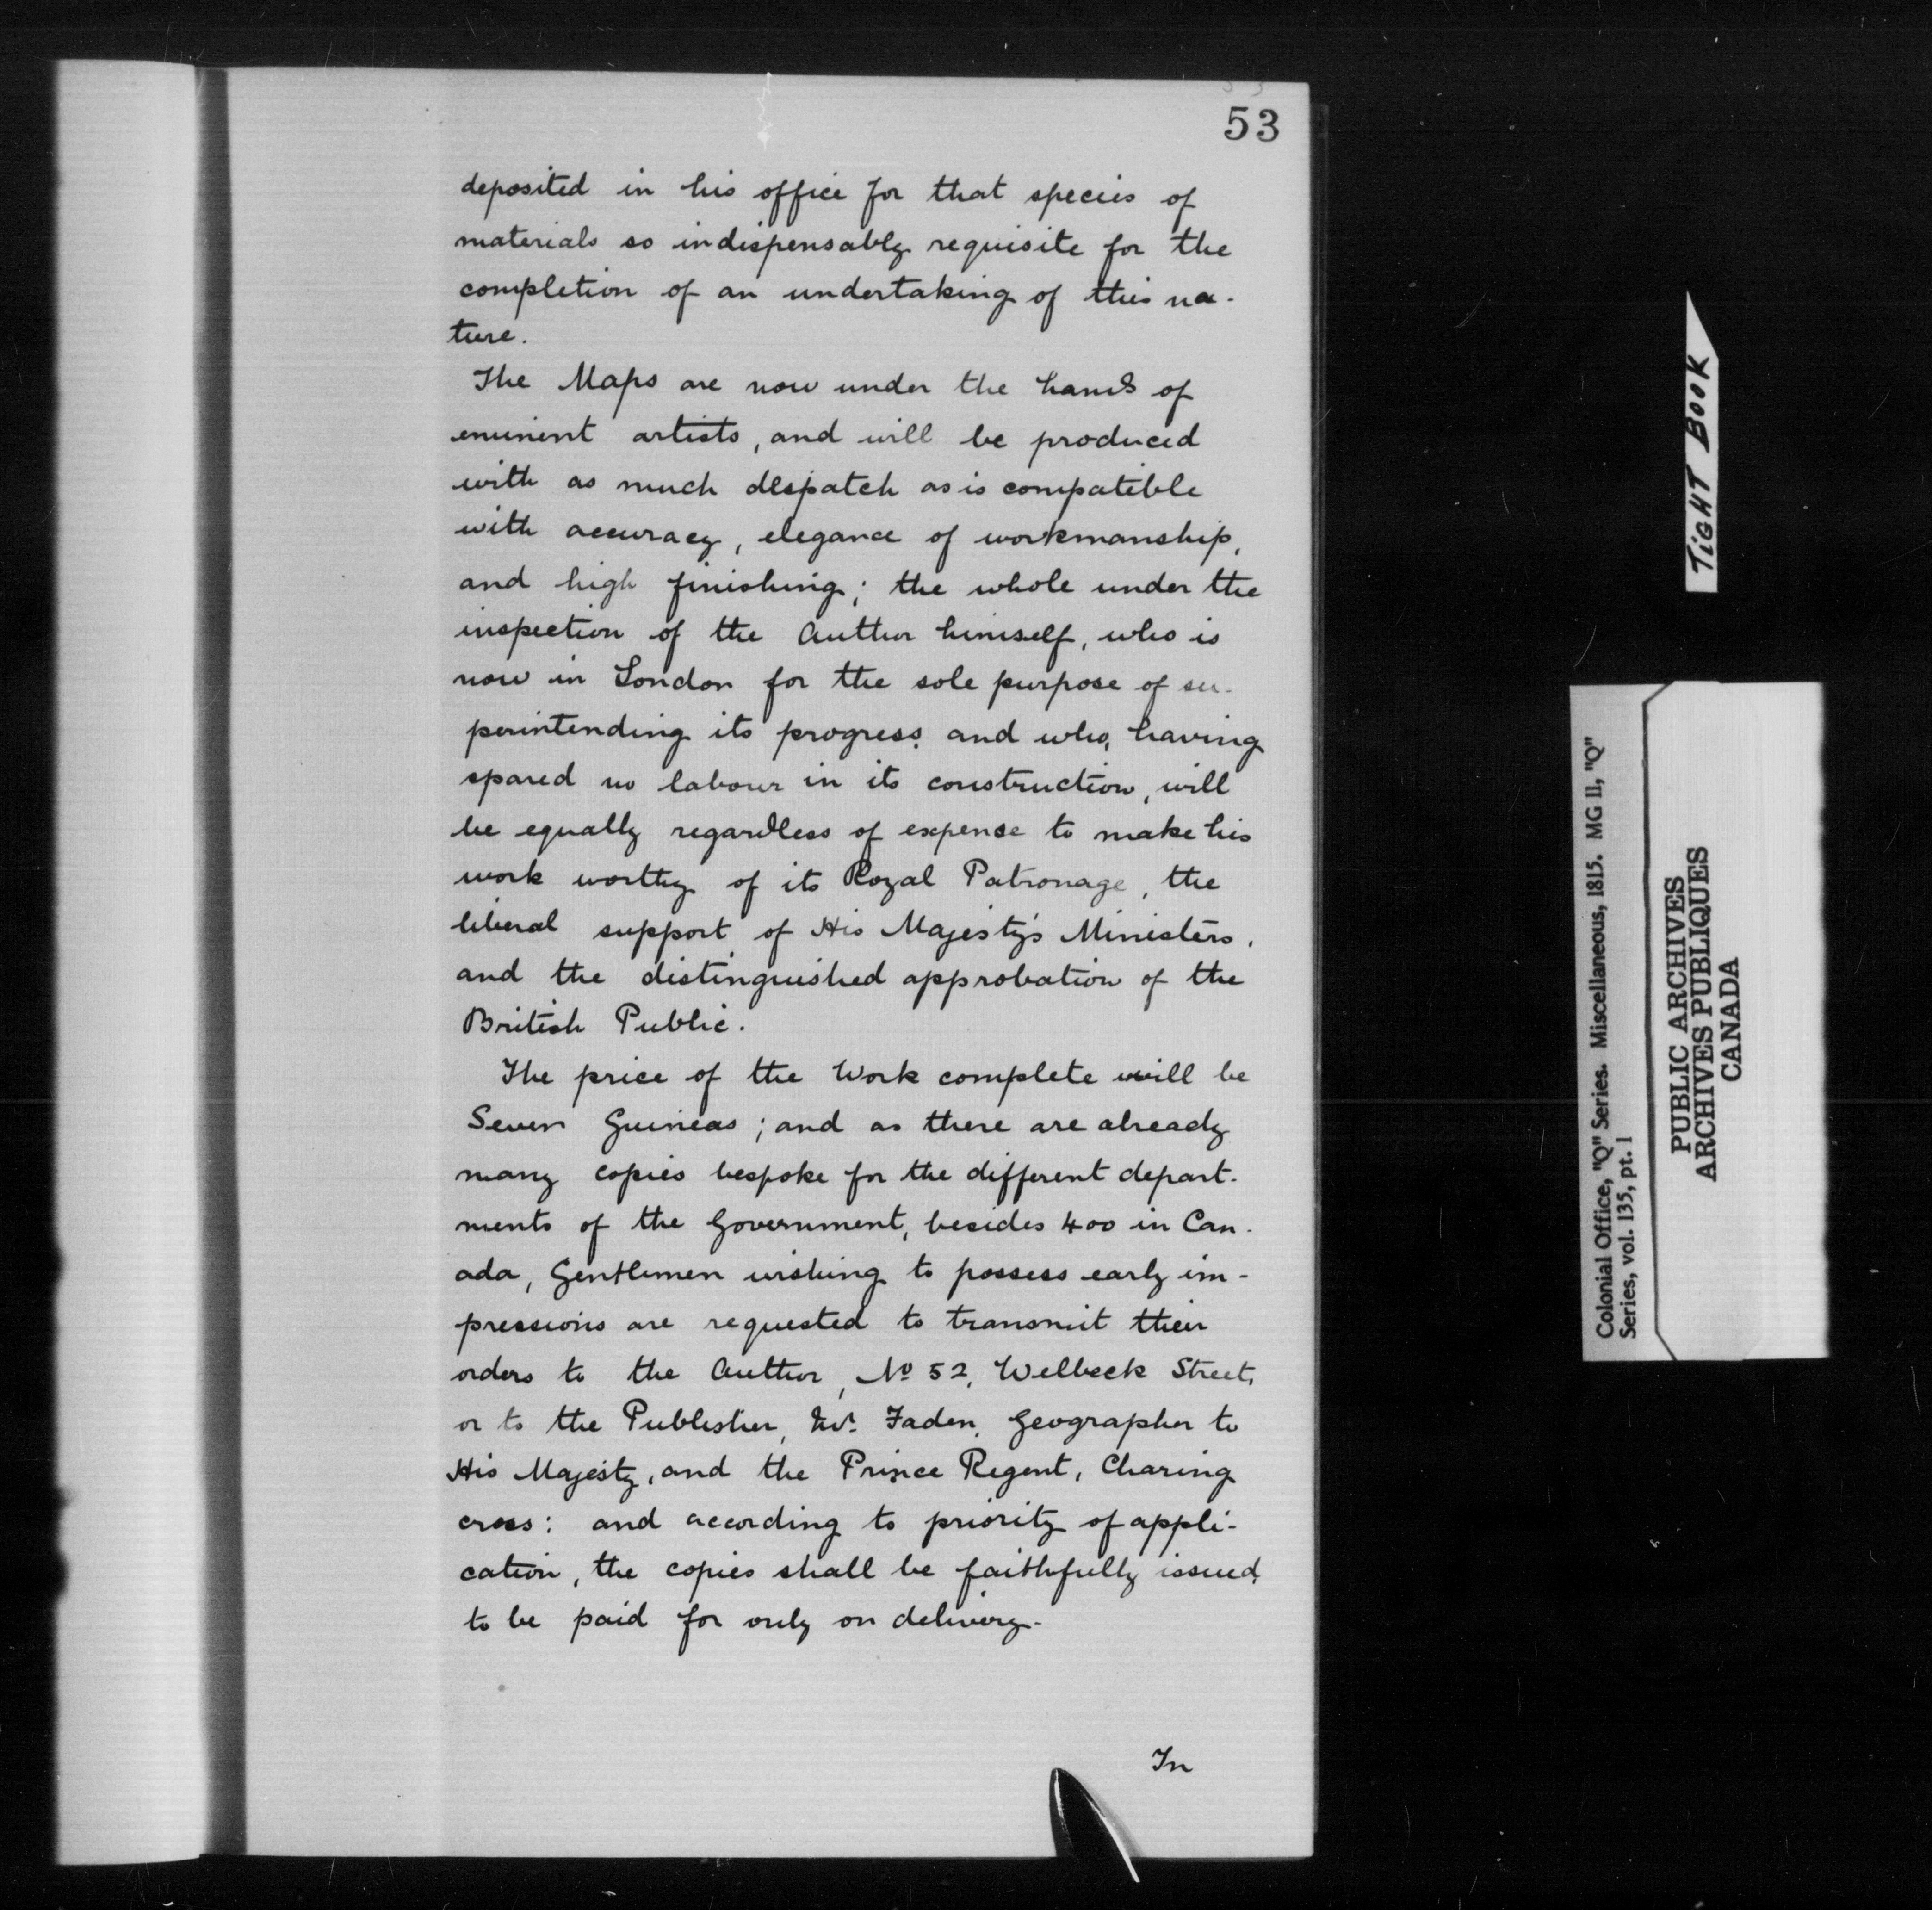 53
deposited in his office for that species of
materials so indispensably requisite for the
completion of an undertaking of this na-
ture.
The Maps are now under the hands of
eminent artists, and will be produced
with as much despatch as is compatible
with accuracy, elegance of workmanship,
and high finishing; the whole under the
inspection of the Author himself, who is
now in London for the sole purpose of su-
perintending its progress, and who, having
spared no labour in its construction, will
be equally regardless of expense to make his
work worthy of its Royal Patronage, the
liberal support of His Majesty's Ministers,
and the distinguished approbation of the
British Public.
The price of the Work complete will be
Seven Guineas; and as there are already
many copies bespoke for the different depart-
ments of the Government, besides 400 in Can-
ada, Gentlemen wishing to possess early im-
pressions are requested to transmit their
orders to the Author, No 52, Welbeck Street,
or to the Publisher, Mr. Faden, Geographer to
His Majesty, and the Prince Regent, Charing
cross: and according to priority of appli-
cation, the copies shall be faithfully issued,
to be paid for only on delivery.
In
TIGHT BOOK
Colonial Office, "Q" Series. Miscellaneous, 1815. MG 11, "Q"
Series, vol. 135, pt. 1
PUBLIC ARCHIVES
ARCHIVES PUBLIQUES
CANADA